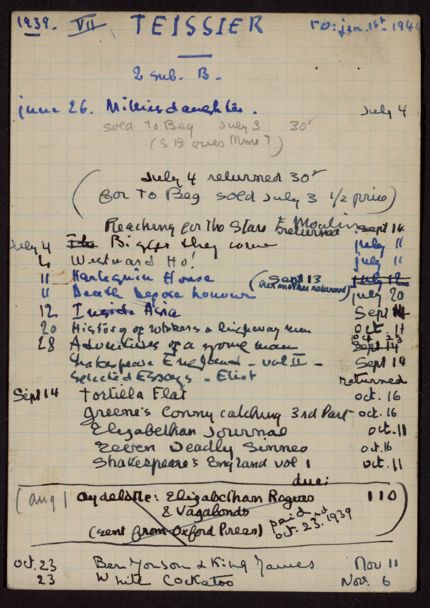 1939. VII TEISSIER to: jan. 1st - 1940
2 sub. B.
june 26. Millions daughter. July 4
sold to Bey July 3 30f
(SB owes Mme T)
(July 4 returned 30f
for To Beg sold July 3 1/2 price)
Reaching for the Stars returned Sept 14
July 4 The Bigger they come july 11
4 Westward Ho! july 11
11 Harlequin House (Sept 13 july 12
11 Death before honour returned) july 20
12 Inside Asia Sept 14
20 History of highway men oct. 11
28 Adventures of a young man Sept 14
Shakespeare England - vol II - Sept 14
Selected Essays - Eliot returned
Sept 14 Tortilla Flat oct. 16
Greene's Conny catching 3rd Part - oct. 16
Elizabethan Journal oct. 11
Seven Deadly Sinnes oct. 16
Shakespeare's England vol 1 oct. 11
due:
(aug) aydelotte: Elizabethan Rogues 110
& Vagabonds
(sent from Oxford Press) paid oct. 23. 1939
oct. 23 Ben Jonson & King James Nov 11
23 White Cockatoo Nov. 6